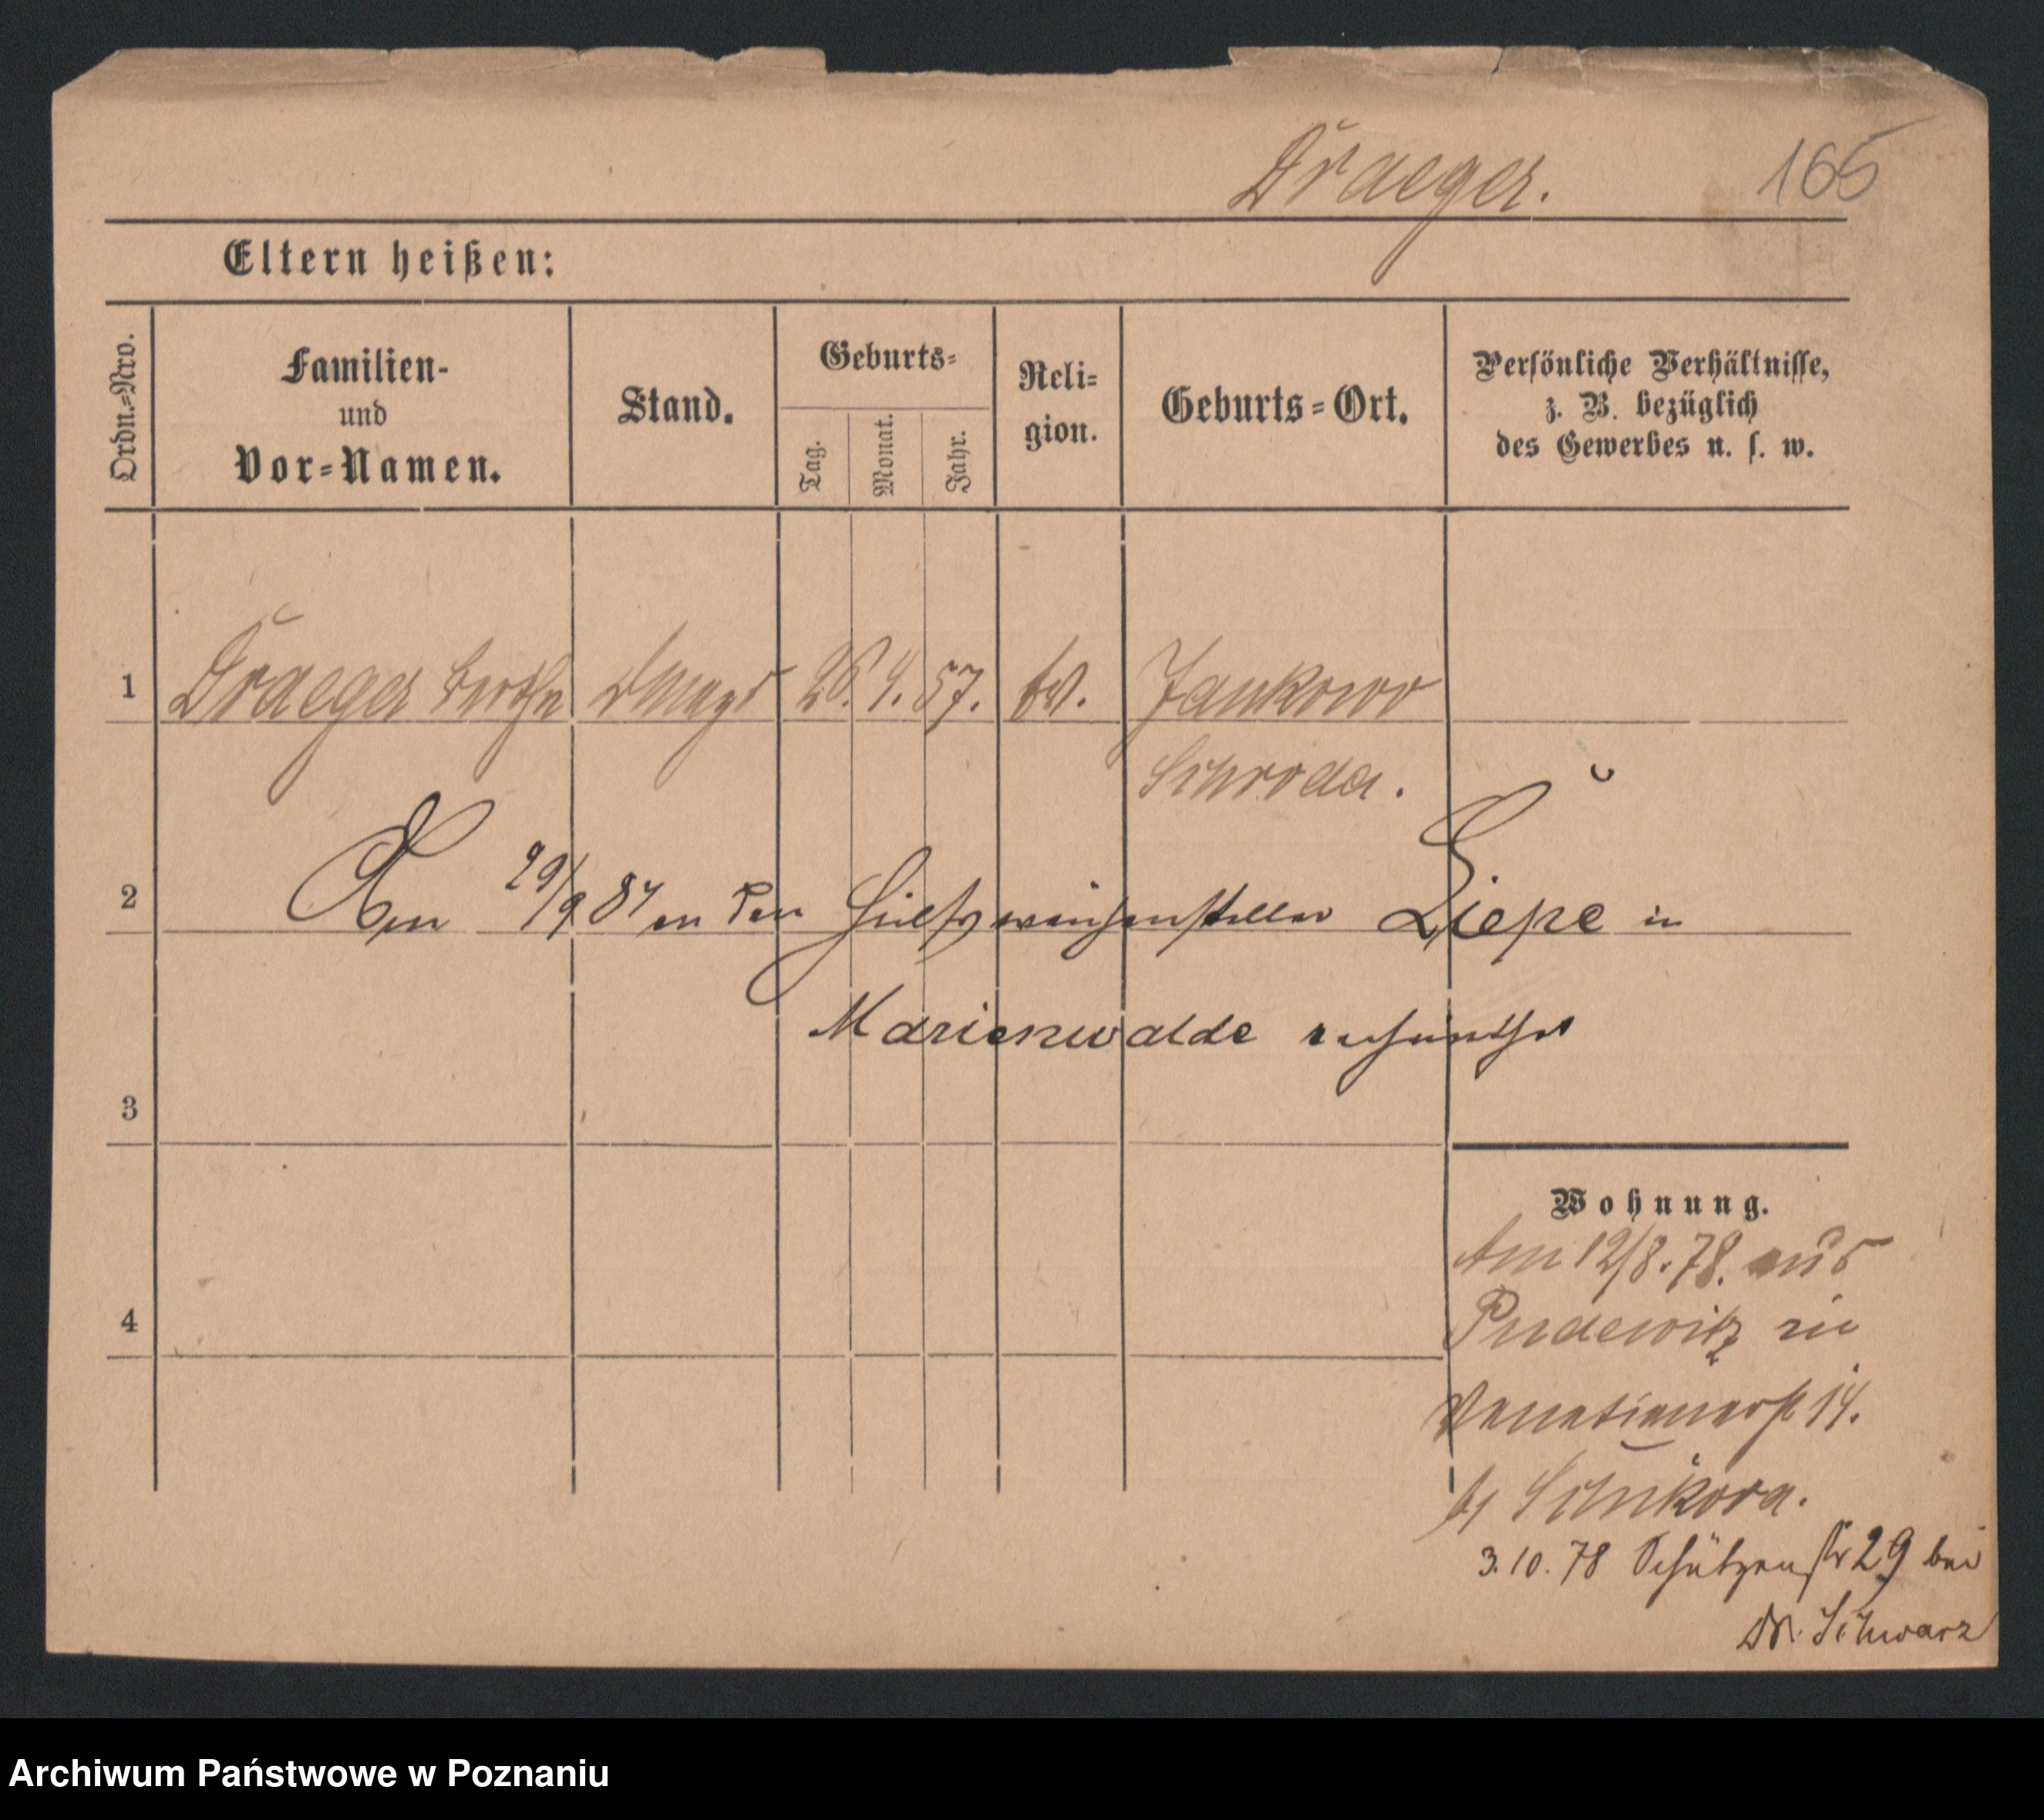 Draeger. 165
Eltern heißen:
Ordn.=Nro.
Familien-
und
Vor=Namen.
Stand.
Geburts=
Tag.
Monat.
Jahr.
Reli=
gion.
Geburts=Ort.
Persönliche Verhältnisse,
z. B. bezüglich
des Gewerbes u. s. w.
1 Draeger Bertha Dmagd 26. 4. 57. ev. Jankowo
Schroda.
2 Am 29/9 84 an den Hülfsweichensteller Liepe in
Marienwalde verheirathet
3
Wohnung.
Am 12/8. 78. aus
Pudewitz in
4
Venetianerst 14.
b/ Schikora.
3. 10. 78 Schützenstr 29 bei
Dr. Schwarz
Archiwum Państwowe w Poznaniu